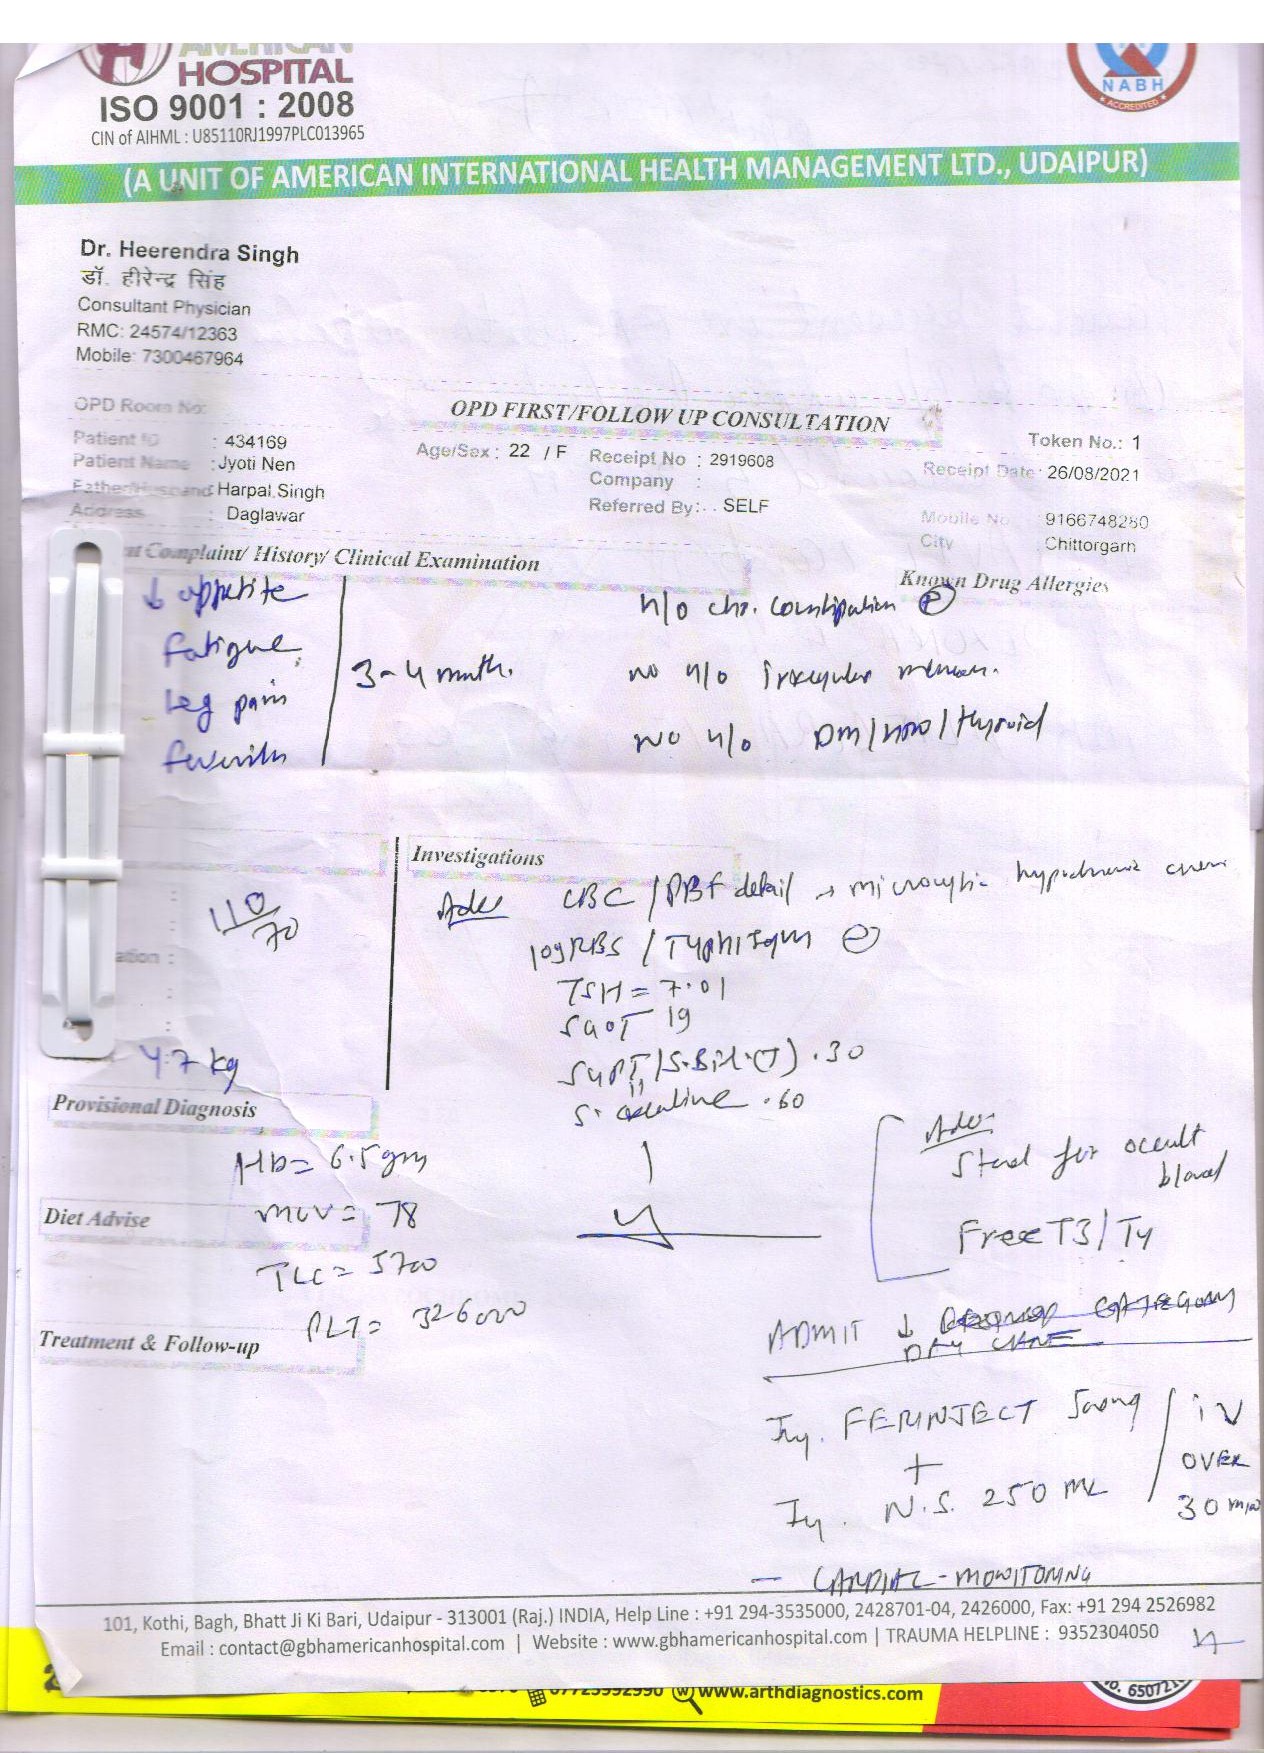 AMERICAN
HOSPITAL
ISO 9001 : 2008
CIN of AIHML : U85110RJ1997PLC013965
NABH
ACCREDITED
(A UNIT OF AMERICAN INTERNATIONAL HEALTH MANAGEMENT LTD., UDAIPUR)
Dr. Heerendra Singh
डॉ. हीरेन्द्र सिंह
Consultant Physician
RMC: 24574/12363
Mobile: 7300467964
OPD Room No:
OPD FIRST/FOLLOW UP CONSULTATION
Token No.: 1
Patient ID : 434169
Age/Sex : 22 / F
Receipt No : 2919608
Receipt Date : 26/08/2021
Patient Name : Jyoti Nen
Company :
Father/Husband Harpal Singh
Referred By: . SELF
Mobile No 9166748280
Address : Daglawar
City : Chittorgarh
nt Complaint/ History/ Clinical Examination
Known Drug Allergies
↓ appetite
fatigue
leg pain
3-4 month.
h/o chr. constipation
no h/o irregular
no h/o DM / / thyroid
Investigations
Adv CBC / PBF detail → microcytic hypochromic
110/70
109 RBS / Typhi IgM
ation :
TSH = 7.01
SGOT 19
SGPT / S.Bil.(T) .30
47 kg
.60
Provisional Diagnosis
Hb = 6.5 gm
Adv.
Stool for occult blood
Diet Advise
MCV = 78
Free T3/T4
TLC = 5700
PLT = 326000
Treatment & Follow-up
ADMIT ↓
DAY CARE
Inj. FERINJECT 500mg / iv
+
OVER
Inj. N.S. 250 ML
30 min
- CARDIAC - MONITORING
101, Kothi, Bagh, Bhatt Ji Ki Bari, Udaipur - 313001 (Raj.) INDIA, Help Line : +91 294-3535000, 2428701-04, 2426000, Fax: +91 294 2526982
Email : contact@gbhamericanhospital.com | Website : www.gbhamericanhospital.com | TRAUMA HELPLINE : 9352304050
07723992990 www.arthdiagnostics.com